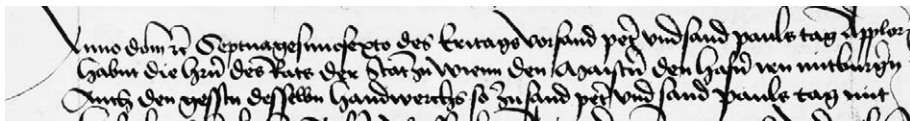 Anno dom̄ ꝛc Septuagesimosexto des Eritags vor sand peter vnd sand pauls tag Appl̄or
habnt die hrn̄ des Rats der Stat zu Wienn den Maistrn̄ den hafnern̄ iren mitburgern̄
Auch den gesstn̄ desselbn̄ handwerchs so zu sand peter vnd sand Pauls tag mit